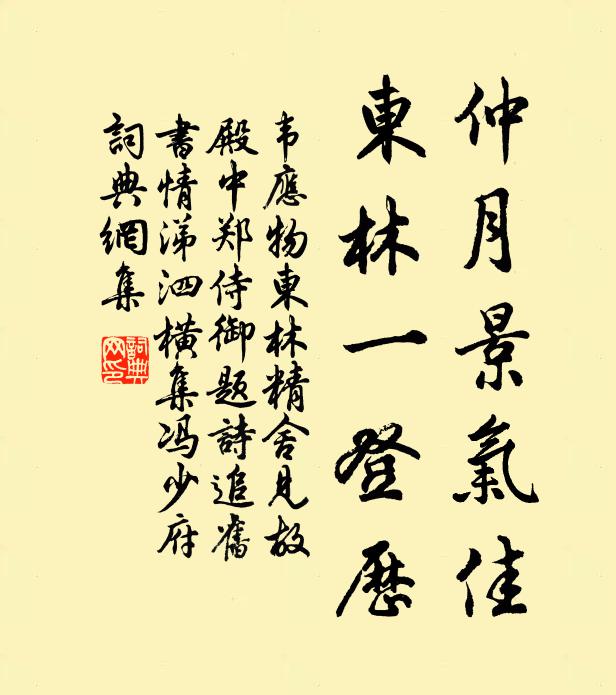 仲月景氣佳
東林一登歷
韦應物東林精舍見故
殿中郑侍御題詩追舊
書情涕泗橫集冯少府
詞典網集
詞典
网印